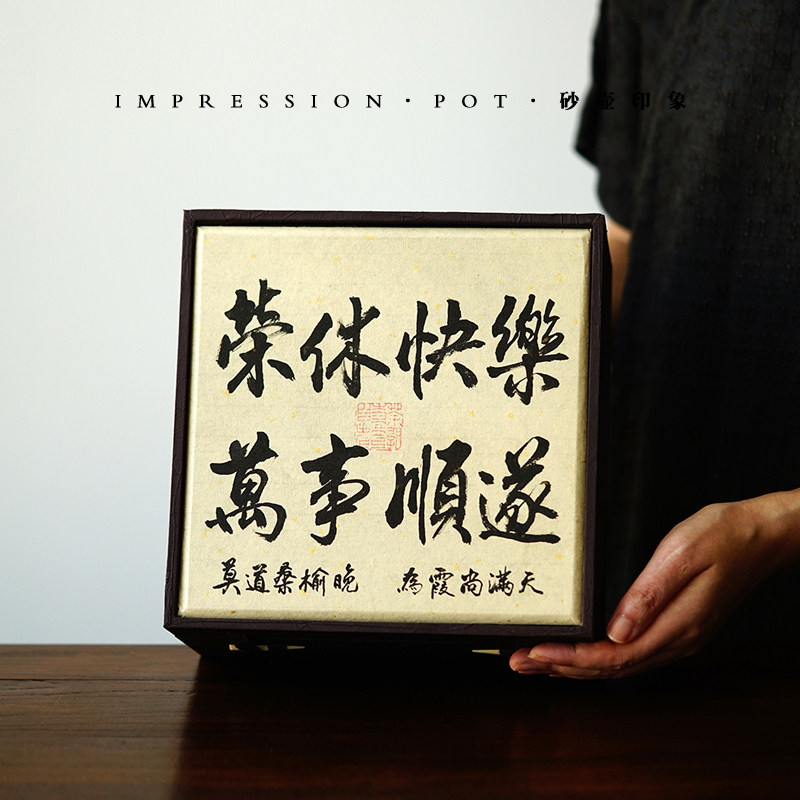 IMPRESSION·POT·砂壶印象
荣休快樂
萬事順遂
莫道桑榆晚 為霞尚滿天